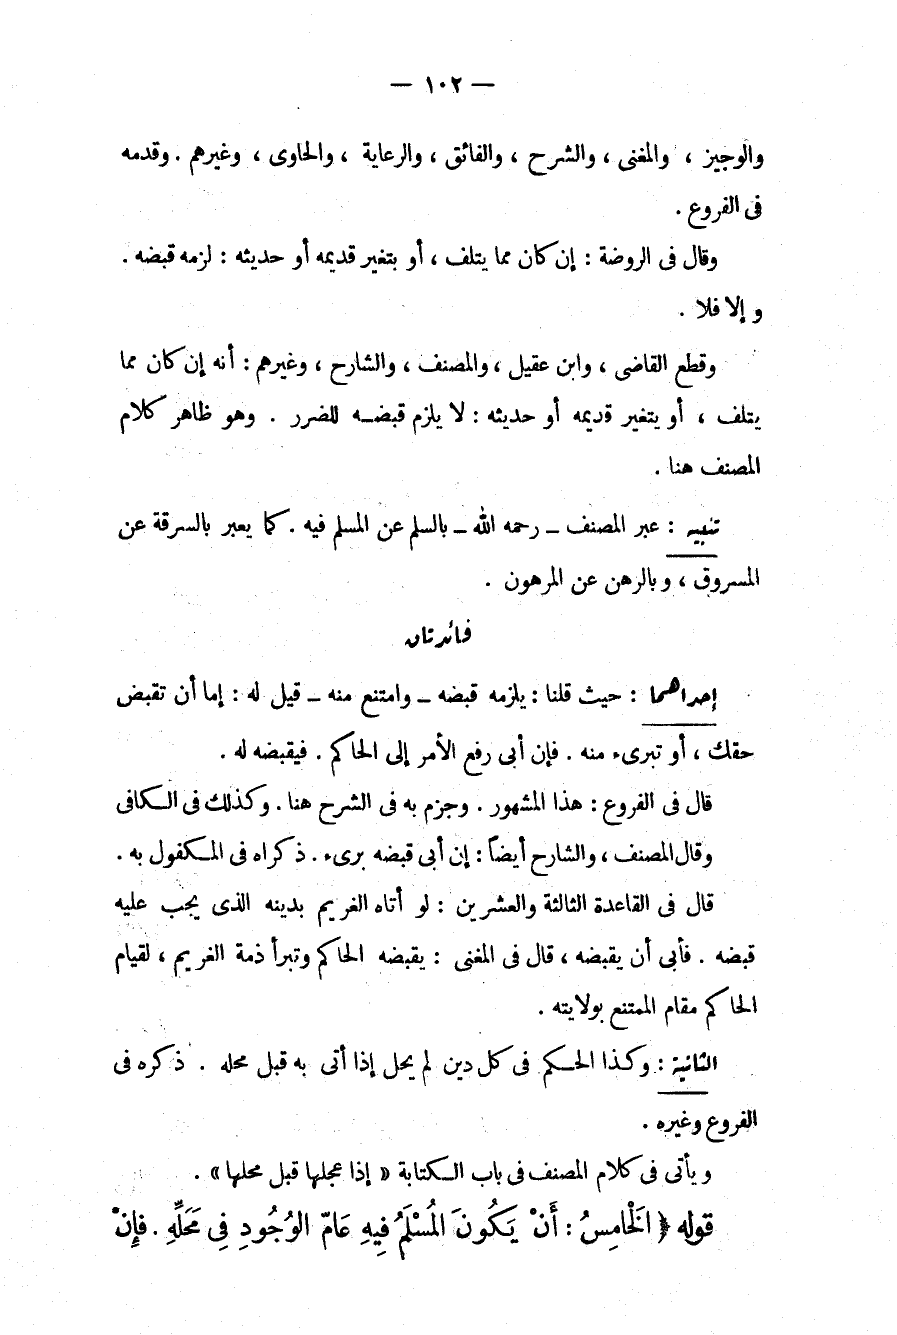 — ١٠٢ —
والوجيز ، والمغنى ، والشرح ، والفائق ، والرعاية ، والحاوى ، وغيرهم . وقدمه
فى الفروع .
وقال فى الروضة : إن كان مما يتلف ، أو بتغير قديمه أو حديثه : لزمه قبضه .
و إلا فلا .
وقطع القاضى ، وابن عقيل ، والمصنف ، والشارح ، وغيرهم : أنه إن كان مما
يتلف ، أو يتغير قديمه أو حديثه : لا يلزم قبضـه للضرر . وهو ظاهر كلام
المصنف هنا .
تنبيه : عبر المصنف ــ رحمه الله ــ بالسلم عن المسلم فيه . كما يعبر بالسرقة عن
المسروق ، و بالرهن عن المرهون .
فائدتان
إحداهما : حيث قلنا : يلزمه قبضه ــ وامتنع منه ــ قيل له : إما أن تقبض
حقك ، أو تبرىء منه . فإن أبى رفع الأمر إلى الحاكم . فيقبضه له .
قال فى الفروع : هذا المشهور . وجزم به فى الشرح هنا . وكذلك فى الـكافى
وقال المصنف ، والشارح أيضاً : إن أبى قبضه برىء . ذكراه فى المـكفول به .
قال فى القاعدة الثالثة والعشرين : لو أتاه الغريم بدينه الذى يجب عليه
قبضه . فأبى أن يقبضه ، قال فى المغنى : يقبضه الحاكم وتبرأ ذمة الغريم ، لقيام
الحاكم مقام الممتنع بولايته .
الثانية : وكـذا الحـكم فى كل دين لم يحل إذا أتى به قبل محله . ذكره فى
الفروع وغيره .
و يأتى فى كلام المصنف فى باب الـكتابة « إذا عجلها قبل محلها » .
قوله ﴿ الْخَامِسُ : أَنْ يَكُونَ الْمُسْلَمُ فِيهِ عَامَّ الْوُجُودِ فِى مَحَلِّهِ . فَإِنْ